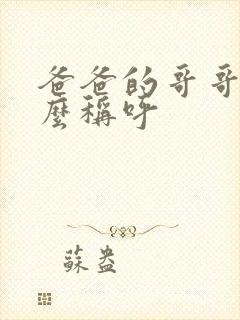 爸爸的哥哥
麼稱呼
蘇盎